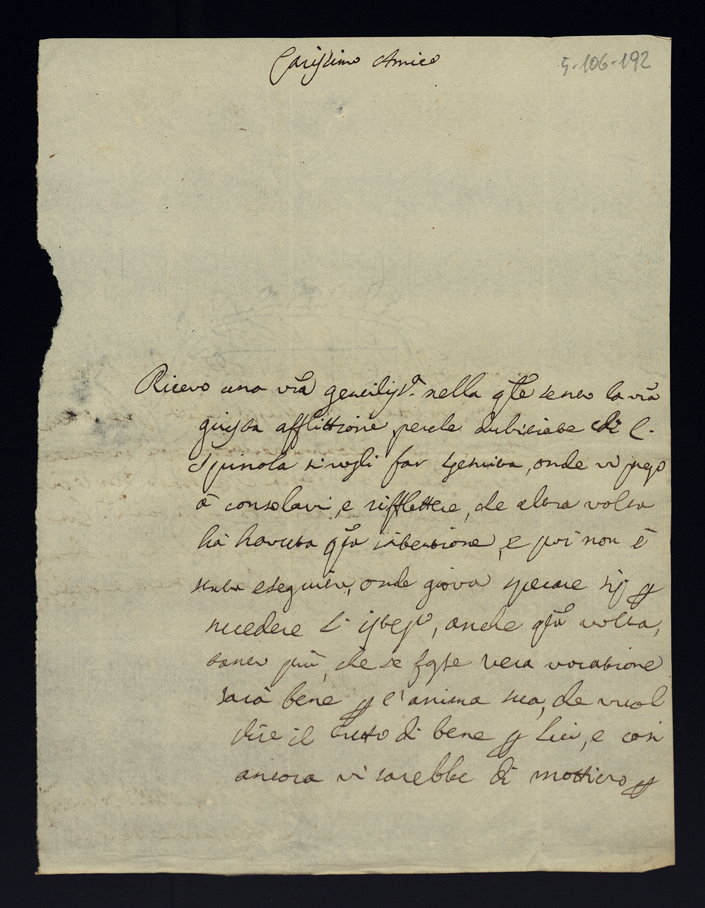 Carissimo Amico
5-106-192
Ricevo una vra gentiliss.a nella qle sento la vra
giusta afflittione, perche dubitiate che C.
Spinola si vogli far Gesuita, onde vi prego
à consolarvi, e rifflettere, che altra volta
hà havuta qsta intentione, e poi non è
stata eseguita, onde giova sperare
succedere l' istesso, anche qsta volta,
tanto più, che se fosse vera vocatione
sarà bene p l'anima sua, che vuol
dire il tutto di bene p Lui, e così
ancora vi sarebbe di mottivo p